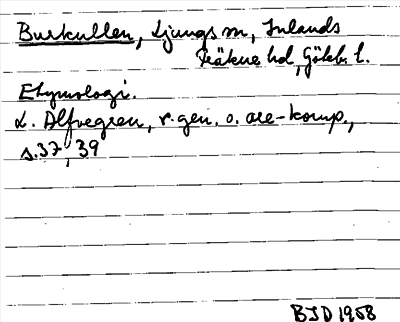 Burkullen, Ljungs sn, Inlands
Fräkne hd, Göteb. l.
Etymologi.
L. Alfvegren, r-gen. o. are-komp.,
s. 37, 39
BJD 1958